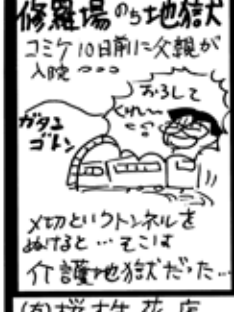 修羅場のち地獄
コミケ10日前に父親が
入院
おろして
くれ〜
ガタン
ゴトン
〆切というトンネルを
ぬけると…そこは
介護地獄だった…